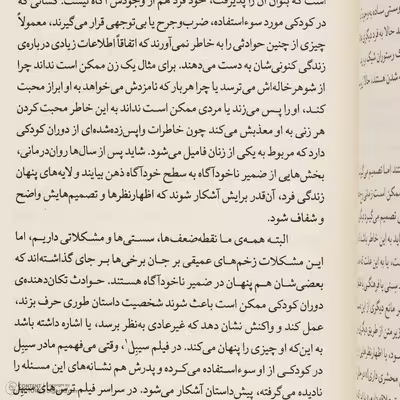 است که بتوان آن را پذیرفت، خود فرد هم از وجودش آگاه نیست. کسانی که
در کودکی مورد سوءاستفاده، ضرب‌وجرح یا بی‌توجهی قرار می‌گیرند، معمولاً
چیزی از چنین حوادثی را به خاطر نمی‌آورند که اتفاقاً اطلاعات زیادی درباره‌ی
زندگی کنونی‌شان به دست می‌دهند. برای مثال یک زن ممکن است نداند چرا
از شوهرخاله‌اش می‌ترسد یا چرا هربار که نامزدش می‌خواهد به او ابراز محبت
کند، او را پس می‌زند یا مردی ممکن است نداند به این خاطر محبت کردن
هر زنی به او معذبش می‌کند چون خاطرات واپس‌زده‌شده‌ای از دوران کودکی
دارد که مربوط به یکی از زنان فامیل می‌شود. شاید پس از سال‌ها روان‌درمانی،
بخش‌هایی از ضمیر ناخودآگاه به سطح خودآگاه ذهن بیایند و لایه‌های پنهان
زندگی فرد، آن‌قدر برایش آشکار شوند که اظهارنظرها و تصمیم‌هایش واضح
و شفاف شود.
البته همه‌ی ما نقطه‌ضعف‌ها، سستی‌ها و مشکلاتی داریم، اما
این مشکلات زخم‌های عمیقی بر جان برخی‌ها بر جای گذاشته‌اند که
بعضی‌شان هم پنهان در ضمیر ناخودآگاه هستند. حوادث تکان‌دهنده‌ی
دوران کودکی ممکن است باعث شوند شخصیت داستان طوری حرف بزند،
عمل کند و واکنش نشان دهد که غیرعادی به‌نظر برسد، یا اشاره داشته باشد
به این‌که او چیزی را پنهان می‌کند. در فیلم سیبل۱، وقتی می‌فهمیم مادر سیبل
در کودکی از او سوءاستفاده می‌کرده و پدرش هم نشانه‌های این مسئله را
نادیده می‌گرفته، پیش‌داستان آشکار می‌شود. در سراسر فیلم ترس‌های سیبل